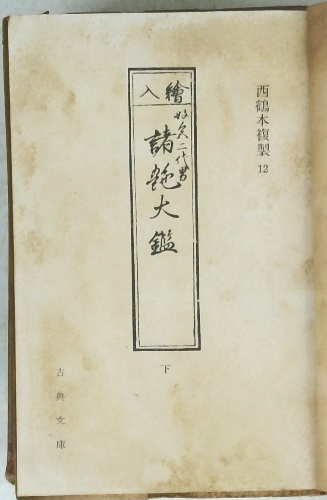 西鶴本複製 12
繪入
好色二代男
諸艶大鑑
下
古典文庫